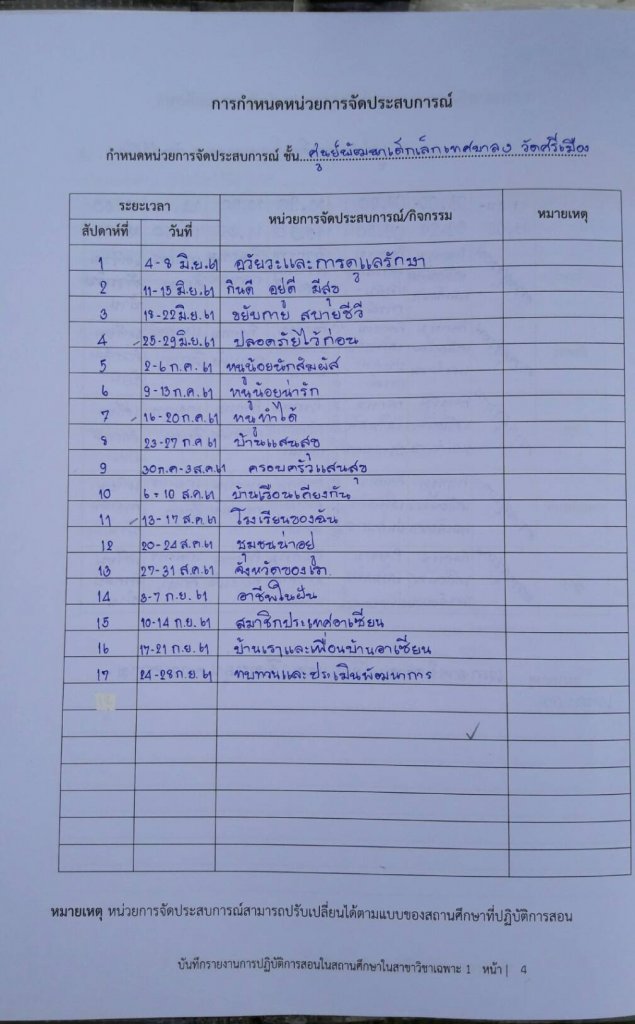 การกำหนดหน่วยการจัดประสบการณ์
กำหนดหน่วยการจัดประสบการณ์ ชั้น ศูนย์พัฒนาเด็กเล็กเทศบาล๑ วัดศรีเมือง
ระยะเวลา หน่วยการจัดประสบการณ์/กิจกรรม หมายเหตุ
สัปดาห์ที่ วันที่
1 4-8 มิ.ย.61 อวัยวะและการดูแลรักษา
2 11-15 มิ.ย.61 กินดี อยู่ดี มีสุข
3 18-22 มิ.ย.61 ขยับกาย สบายชีวี
4 25-29 มิ.ย.61 ปลอดภัยไว้ก่อน
5 2-6 ก.ค. 61 หนูน้อยนักสัมผัส
6 9-13 ก.ค.61 หนูน้อยน่ารัก
7 16-20 ก.ค.61 หนูทำได้
8 23-27 ก.ค 61 บ้านแสนสุข
9 30 ก.ค-3 ส.ค.61 ครอบครัวแสนสุข
10 6-10 ส.ค.61 บ้านเรือนเคียงกัน
11 13-17 ส.ค.61 โรงเรียนของฉัน
12 20-24 ส.ค.61 ชุมชนน่าอยู่
13 27-31 ส.ค.61 จังหวัดของเรา
14 3-7 ก.ย. 61 อาชีพในฝัน
15 10-14 ก.ย. 61 สมาชิกประเทศอาเซียน
16 17-21 ก.ย. 61 บ้านเราและเพื่อนบ้านอาเซียน
17 24-28 ก.ย. 61 ทบทวนและประเมินพัฒนาการ
หมายเหตุ หน่วยการจัดประสบการณ์สามารถปรับเปลี่ยนได้ตามแบบของสถานศึกษาที่ปฏิบัติการสอน
บันทึกรายงานการปฏิบัติการสอนในสถานศึกษาในสาขาวิชาเฉพาะ 1 หน้า | 4